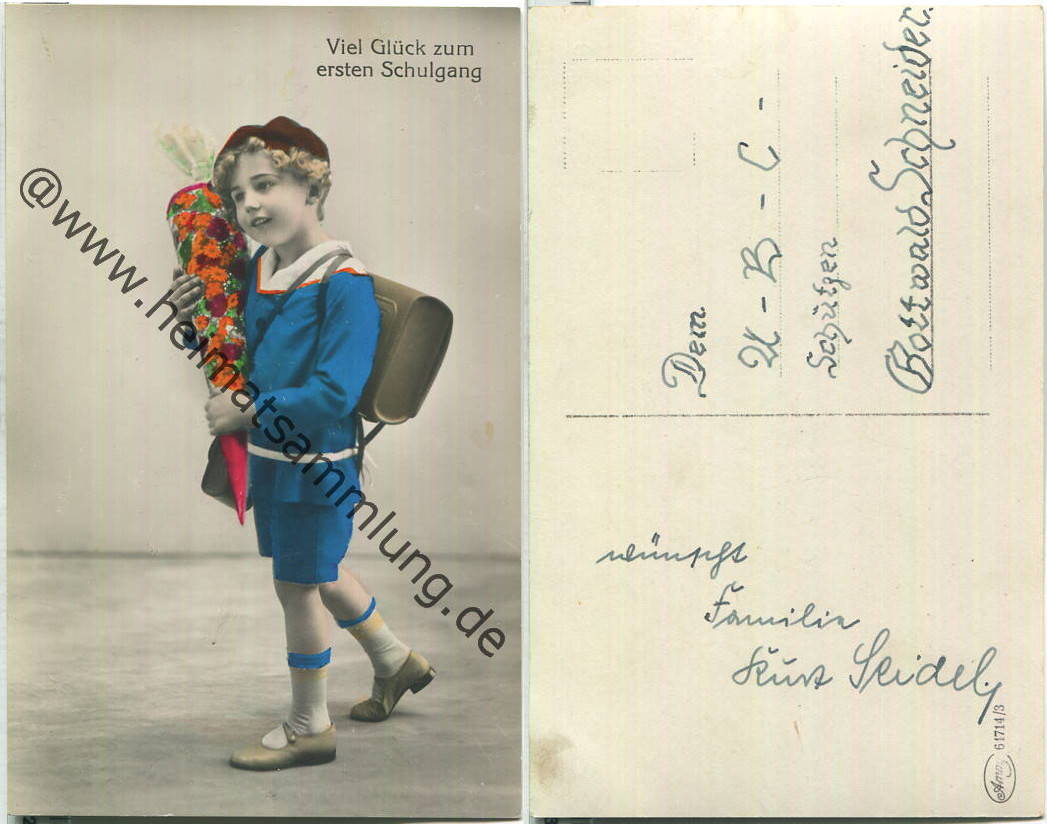 Viel Glück zum
ersten Schulgang
@www.heimatsammlung.de
Dem
A-B-C-
Schützen
Gottwald Schneider.
wünscht
Familie
Kurt Seidel,
Amag 61714/3